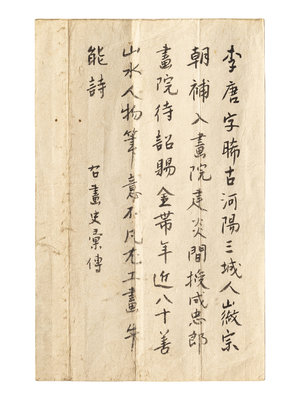 李唐字晞古河陽三城人㳶宗
朝補入畫院建炎間授成忠郎
畫院待詔賜金帶年近八十善
山水人物筆意不凡尤工畫牛
能詩
古畫史彙傳